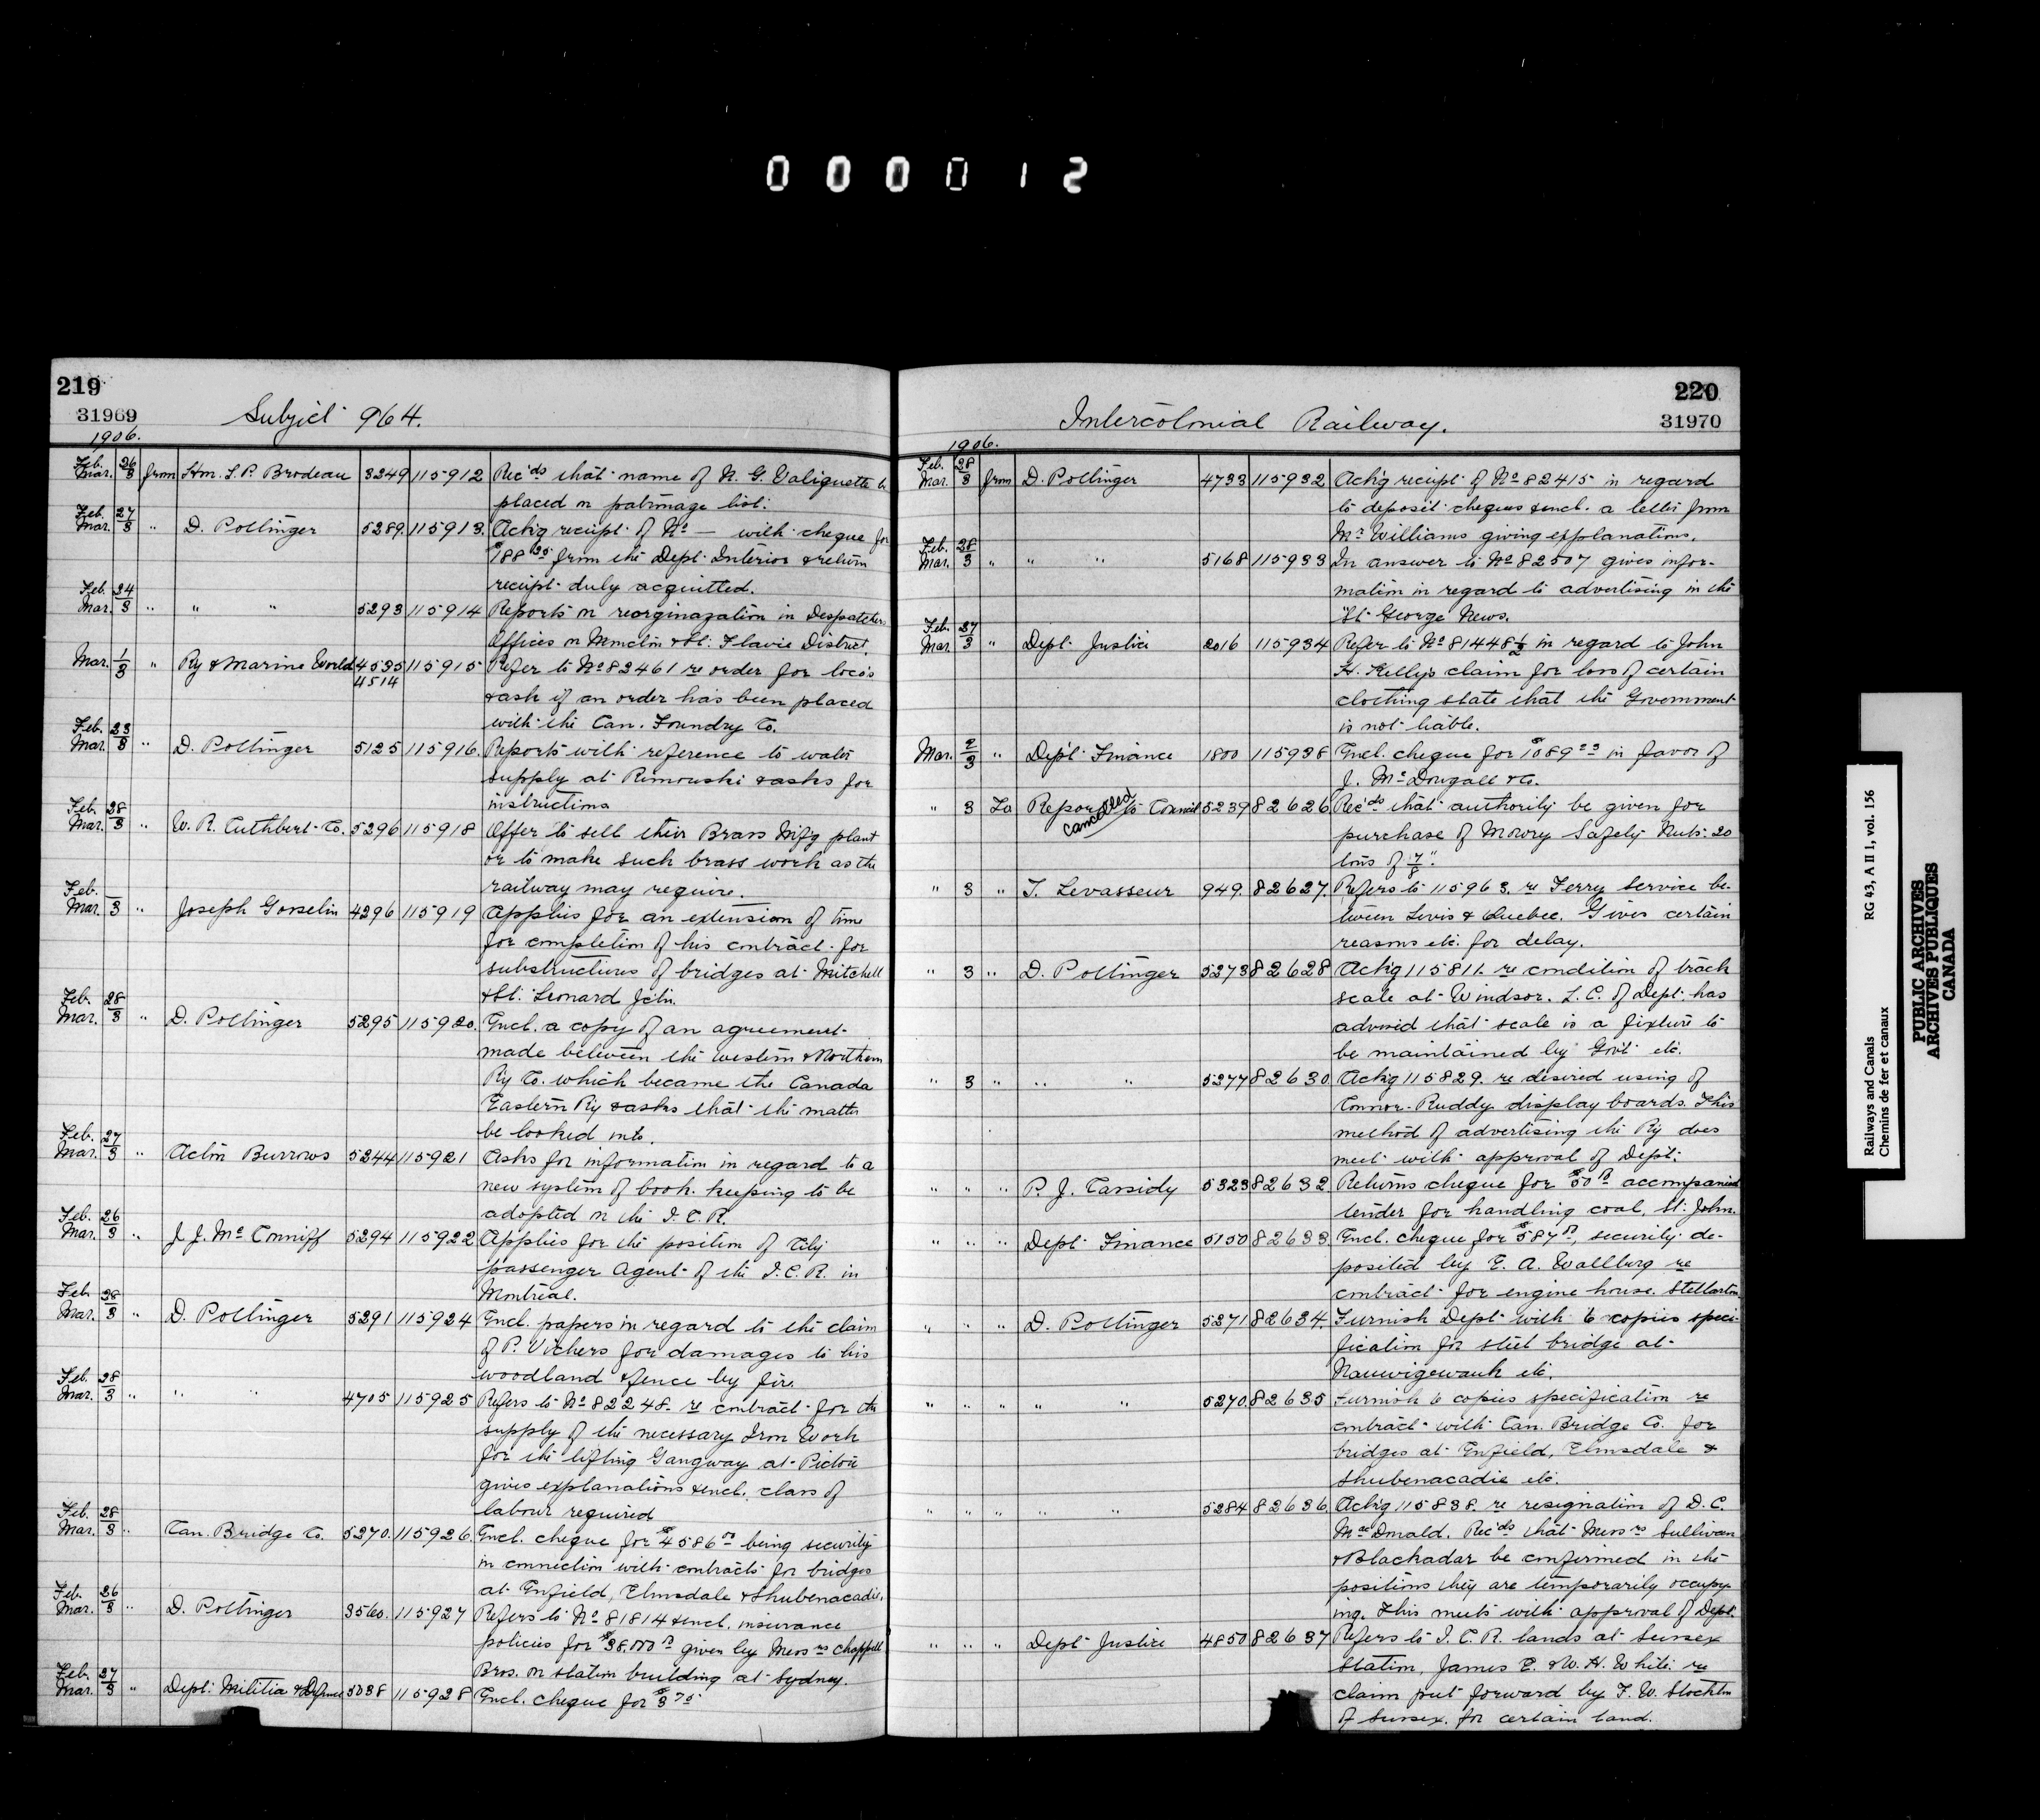 000012
219
31969
Subject 964.
1906.
Feb. 26
Mar. 3 from Hon. L. P. Brodeau 3249 115912 Rec'ds that name of N. G. Valiquette be
placed on patronage list.
Feb. 27
Mar. 3 " D. Pottinger 5289. 115913. Ack'g receipt of No — with cheque for
from the Dept. Interior & return
receipt duly acquitted.
Feb. 24
Mar. 3 " " " 5293 115914 Reports on reorginazation in Despatchers
Offices on Moncton & St. Flavie District.
Mar. 1/3 " Ry & Marine World 4535 115915 Refer to No 82461 re order for loco's
4514
& ask if an order has been placed
with the Can. Foundry Co.
Feb. 23
Mar. 3 " D. Pottinger 5125 115916. Reports with reference to water
supply at Rimouski & asks for
instructions
Feb. 28
Mar. 3 " W. R. Cuthbert Co. 5296 115918 Offer to sell their Brass Mif'g plant
or to make such brass work as the
railway may require.
Feb.
Mar. 3 " Joseph Gosselin 4296 115919 Applies for an extension of time
for completion of his contract for
substructures of bridges at Mitchell
& St. Leonard Jctn.
Feb. 28
Mar. 3 " D. Pottinger 5295 115920. Encl. a copy of an agreement
made between the Western & Northern
Ry Co. which became the Canada
Eastern Ry & asks that the matter
be looked into.
Feb. 27
Mar. 3 " Acton Burrows 5244 115921 Asks for information in regard to a
new system of book keeping to be
adopted on the I. C. R.
Feb. 26
Mar. 3 " J. J. McConniff 5294 115922 Applies for the position of City
passenger Agent of the I. C. R. in
Montreal.
Feb. 28
Mar. 3 " D. Pottinger 5291 115924 Encl. papers in regard to the claim
of P. Vickers for damages to his
woodland & fence by fire.
Feb. 28
Mar. 3 " " " 4705 115925 Refers to No 82248. re contract for the
supply of the necessary Iron Work
for the lifting Gangway at Pictou
gives explanations & encl. class of
labour required
Feb. 28
Mar. 3 " Can. Bridge Co. 5270. 115926. Encl. cheque for $4586 00 being security
in connection with contracts for bridges
at Enfield, Elmsdale & Shubenacadie.
Feb. 26
Mar. 3 " D. Pottinger 3560. 115927 Refers to No 81814 & encl. insurance
policies for $38,000 00 given by Messrs Chappell
Bros. on station building at Sydney.
Feb. 27
Mar. 3 " Dept. Militia & Defence 5038 115928 Encl. cheque for $3 75
220
31970
Intercolonial Railway.
1906.
Feb. 28
Mar. 3 from D. Pottinger 4733 115932 Ack'g receipt of No 82415 in regard
to deposit cheques & encl. a letter from
Mr Williams giving explanations.
Feb. 28
Mar. 3 " " " 5168 115933 In answer to No 82507 gives infor-
mation in regard to advertising in the
St. George News.
Feb. 27
Mar. 3 " Dept. Justice 2016 115934 Refer to No 81448½ in regard to John
H. Kelly's claim for loss of certain
clothing state that the Government
is not liable.
Mar. 2/3 " Dep't Finance 1800 115938 Encl. cheque for $1089 23 in favor of
J. McDougall & Co.
" 3 To Report to Council 5239 82626 Rec'ds that authority be given for
cancelled
purchase of Mowry Safety Nuts. 20
tons of 7/8".
" 3 " T. Levasseur 949. 82627. Refers to 115963. re Ferry Service be-
tween Levis & Quebec. Gives certain
reasons etc. for delay.
" 3 " D. Pottinger 5273 82628 Ack'g 115811. re condition of track
scale at Windsor. L. C. of Dept. has
advised that scale is a fixture to
be maintained by Gov't etc.
" 3 " " " 5277 82630. Ack'g 115829. re desired using of
Connor-Ruddy display boards. This
method of advertising the Ry does
meet with approval of Dept.
" " " P. J. Cassidy 5323 82632. Returns cheque for $50 00 accompanied
tender for handling coal, St. John.
" " " Dept. Finance 5150 82633. Encl. cheque for $587 00, security de-
posited by E. A. Wallburg re
contract for engine house. Stellarton.
" " " D. Pottinger 5271 82634. Furnish Dept. with 6 copies speci-
fication for steel bridge at
Nauwigewauk etc.
" " " " " 5270. 82635 Furnish 6 copies specification re
contract with Can. Bridge Co. for
bridges at Enfield, Elmsdale &
Shubenacadie etc.
" " " " " 5284 82636. Ack'g 115838. re resignation of D. C.
MacDonald. Rec'ds that Messrs Sullivan
& Blackadar be confirmed in the
positions they are temporarily occupy-
ing. This meets with approval of Dept.
" " " Dept. Justice 4850 82637 Refers to I. C. R. lands at Sussex
Station, James E. & W. H. White re
claim put forward by F. W. Stockton
of Sussex. for certain land.
Railways and Canals
Chemins de fer et canaux
RG 43, A II 1, vol. 156
PUBLIC ARCHIVES
ARCHIVES PUBLIQUES
CANADA